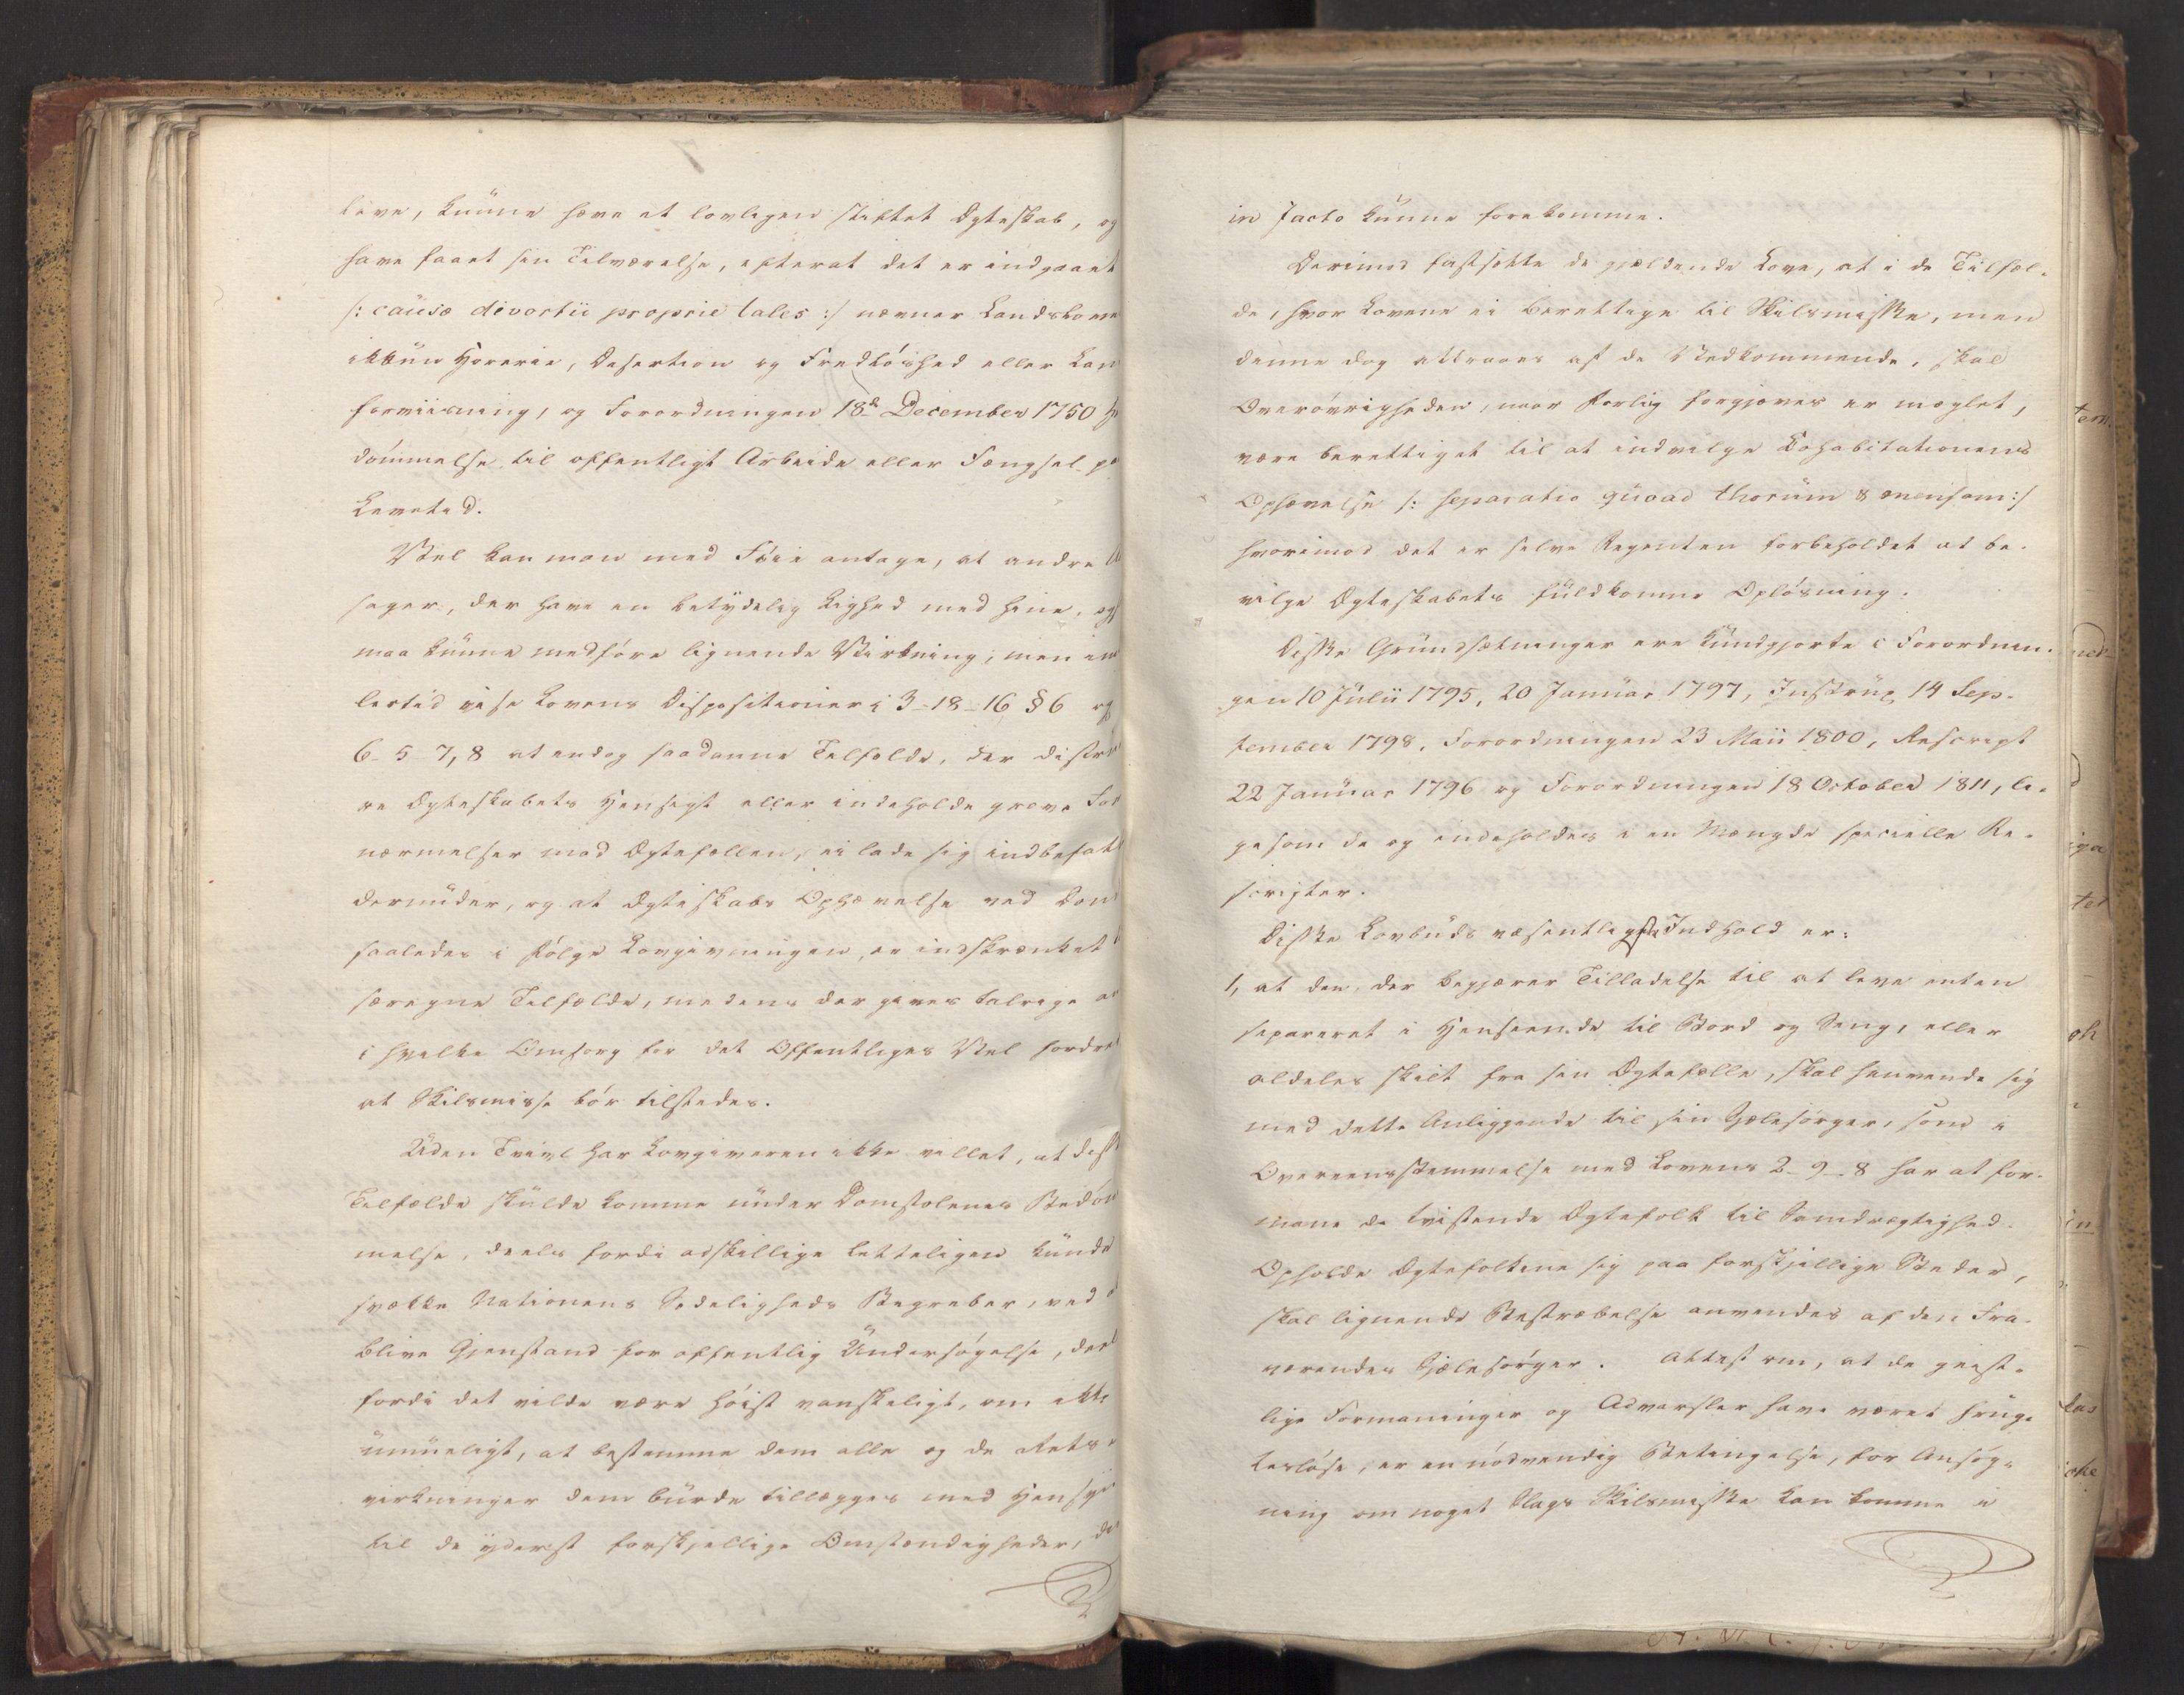 live, kunne hæve et lovligen stiftet Ægteskab, og
have faaet sin Tilværelse, efterat det er indgaaet
/: causæ divortii proprie tales :/ nævner Landslovene
ikkun Hoererie, Desertion og Fredløshed eller Lan
forviisning, og Forordningen 18d December 1750
dømmelse til offentligt Arbeide eller Fængsel p
Levetid.
Vel kan man med Føie antage, at andre
sager, der have en betydelig Lighed med hine, og
maa kunne medføre lignende Virkning, men
lertid vise Lovens Dispositioner i 3-18-16 § 6 og
6-5-7, 8 at endog saadanne Tilfælde, der
re Ægteskabets Hensigt eller indeholde grove For
nærmelser mod Ægtefællen, ei lade sig indbefat
derunder, og at Ægteskabs Ophævelse ved Dom
saaledes i følge Lovgivningen, er indskrænket
færegne Tilfælde, medens der gives talrige
i hvilke Omsorg for det Offentliges Vel fordre
at Skilsmisse bør tilstedes.
Uden Tvivl har Lovgiveren ikke villet, at diss
Tilfælde skulde komme under Domstolenes Bedøm
melse, deels fordi adskillige letteligen kunde
svække Nationens Sædeligheds Begreber, ved
blive Gjenstand for offentlig Undersøgelse, deel
fordi det vilde være høist vanskeligt, om ikke
umueligt, at bestemme dem alle og de Rets
virkninger dem burde tillægges med Hensyn
til de yderst forskjellige Omstændigheder, de
in facto kunne forekomme.
Derimod fastsætte de gjældende Love, at i de Tilfæl-
de, hvor Lovene ei berettige til Skilsmisse, men
denne dog attraaes af de Vedkommende, skal
Overøvrigheden, naar Forlig forgjæves er mæglet,
være berettiget til at indvilge Cohabitationens
Ophævelse /: separatio quoad thorum & mensam :/
hvorimod det er selve Regenten forbeholdet at be-
vilge Ægteskabets fuldkomne Opløsning.
Disse Grundsætninger ere kundgjorte i Forordnin-
gen 10 Julii 1795, 20 Januar 1797, Instrux 14 Sep-
tember 1798, Forordningen 23 Maii 1800, Rescript
22 Januar 1796 og Forordningen 18 October 1811, li-
gesom de og indeholdes i en Mængde specielle Re-
scripter.
Disse Lovbuds væsentligste Indhold er:
1, at den, der begjærer Tilladelse til at leve enten
separeret i Henseende til Bord og Seng, eller
aldeles skilt fra sin Ægtefælle, skal henvende sig
med dette Anliggende til sin Sjælesørger, som i
Overeensstemmelse med Lovens 2-9-8 har at for-
mane de tvistende Ægtefolk til Samdrægtighed.
Opholde Ægtefolkene sig paa forskjellige Steder,
skal lignende Bestræbelse anvendes af den Fra-
værendes Sjælesørger. Attest om, at de geist-
lige Formaninger og Advarsler have været frug-
tesløse, er en nødvendig Betingelse, for Ansøg-
ning om noget Slags Skilsmisse kan komme i